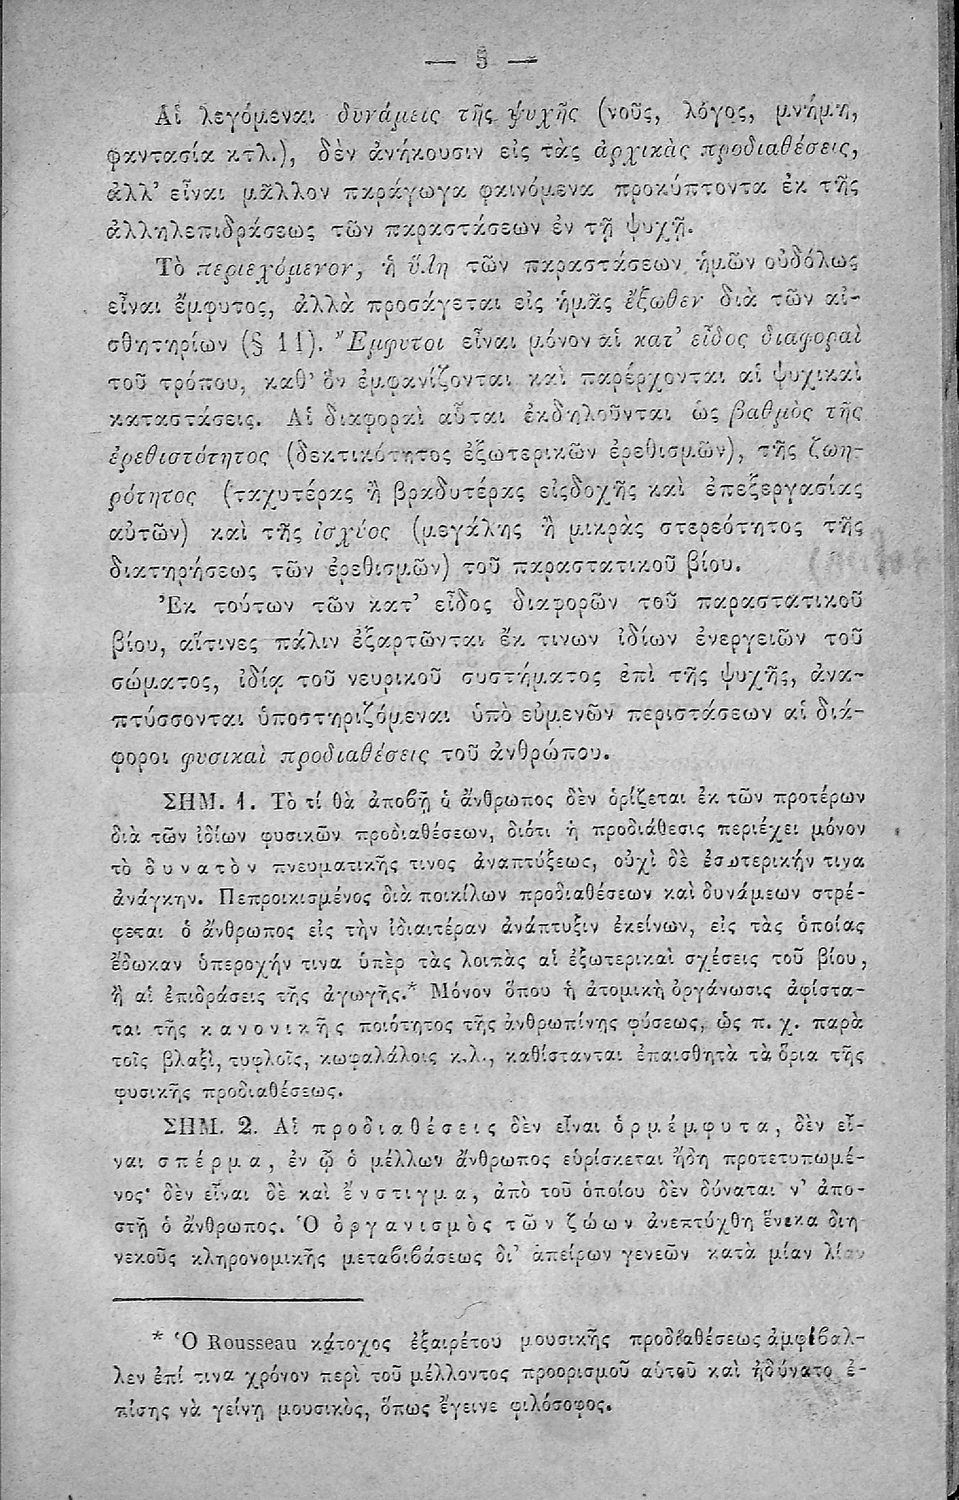 — 5 —
Αἱ λεγόμεναι δυνάμεις τῆς ψυχῆς (νοῦς, λόγος, μνήμη,
φαντασία κτλ.), δὲν ἀνήκουσιν εἰς τὰς ἀρχικὰς προδιαθέσεις,
ἀλλ' εἶναι μᾶλλον παράγωγα φαινόμενα προκύπτοντα ἐκ τῆς
ἀλληλεπιδράσεως τῶν παραστάσεων ἐν τῇ ψυχῇ.
Τὸ περιεχόμενον, ἡ ὕλη τῶν παραστάσεων ἡμῶν οὐδόλως
εἶναι ἔμφυτος, ἀλλὰ προσάγεται εἰς ἡμᾶς ἔξωθεν διὰ τῶν αἰ-
σθητηρίων (§ 11). Ἔμφυτοι εἶναι μόνον αἱ κατ' εἶδος διαφοραὶ
τοῦ τρόπου, καθ' ὃν ἐμφανίζονται καὶ παρέρχονται αἱ ψυχικαὶ
καταστάσεις. Αἱ διαφοραὶ αὗται ἐκδηλοῦνται ὡς βαθμὸς τῆς
ἐρεθιστότητος (δεκτικότητος ἐξωτερικῶν ἐρεθισμῶν), τῆς ζωη-
ρότητος (ταχυτέρας ἢ βραδυτέρας εἰςδοχῆς καὶ ἐπεξεργασίας
αὐτῶν) καὶ τῆς ἰσχύος (μεγάλης ἢ μικρᾶς στερεότητος τῆς
διατηρήσεως τῶν ἐρεθισμῶν) τοῦ παραστατικοῦ βίου.
Ἐκ τούτων τῶν κατ' εἶδος διαφορῶν τοῦ παραστατικοῦ
βίου, αἵτινες πάλιν ἐξαρτῶνται ἔκ τινων ἰδίων ἐνεργειῶν τοῦ
σώματος, ἰδίᾳ τοῦ νευρικοῦ συστήματος ἐπὶ τῆς ψυχῆς, ἀνα-
πτύσσονται ὑποστηριζόμεναι ὑπὸ εὐμενῶν περιστάσεων αἱ διά-
φοροι φυσικαὶ προδιαθέσεις τοῦ ἀνθρώπου.
ΣΗΜ. 1. Τὸ τί θὰ ἀποβῇ ὁ ἄνθρωπος δὲν ὁρίζεται ἐκ τῶν προτέρων
διὰ τῶν ἰδίων φυσικῶν προδιαθέσεων, διότι ἡ προδιάθεσις περιέχει μόνον
τὸ δυνατὸν πνευματικῆς τινος ἀναπτύξεως, οὐχὶ δὲ ἐσωτερικήν τινα
ἀνάγκην. Πεπροικισμένος διὰ ποικίλων προδιαθέσεων καὶ δυνάμεων στρέ-
φεται ὁ ἄνθρωπος εἰς τὴν ἰδιαιτέραν ἀνάπτυξιν ἐκείνων, εἰς τὰς ὁποίας
ἔδωκαν ὑπεροχήν τινα ὑπὲρ τὰς λοιπὰς αἱ ἐξωτερικαὶ σχέσεις τοῦ βίου,
ἢ αἱ ἐπιδράσεις τῆς ἀγωγῆς.* Μόνον ὅπου ἡ ἀτομικὴ ὀργάνωσις ἀφίστα-
ται τῆς κανονικῆς ποιότητος τῆς ἀνθρωπίνης φύσεως, ὡς π. χ. παρὰ
τοῖς βλαξί, τυφλοῖς, κωφαλάλοις κ.λ., καθίστανται ἐπαισθητὰ τὰ ὅρια τῆς
φυσικῆς προδιαθέσεως.
ΣΗΜ. 2. Αἱ προδιαθέσεις δὲν εἶναι ὁρμέμφυτα, δὲν εἶ-
ναι σπέρμα, ἐν ᾧ ὁ μέλλων ἄνθρωπος εὑρίσκεται ἤδη προτετυπωμέ-
νος· δὲν εἶναι δὲ καὶ ἔνστιγμα, ἀπὸ τοῦ ὁποίου δὲν δύναται ν' ἀπο-
στῇ ὁ ἄνθρωπος. Ὁ ὀργανισμὸς τῶν ζώων ἀνεπτύχθη ἕνεκα διη
νεκοῦς κληρονομικῆς μεταβιβάσεως δι' ἀπείρων γενεῶν κατὰ μίαν
* Ὁ Rousseau κάτοχος ἐξαιρέτου μουσικῆς προδιαθέσεως ἀμφίβαλ-
λεν ἐπί τινα χρόνον περὶ τοῦ μέλλοντος προορισμοῦ αὐτοῦ καὶ ἠδύνατο ἐ-
πίσης νὰ γείνῃ μουσικὸς, ὅπως ἔγεινε φιλόσοφος.